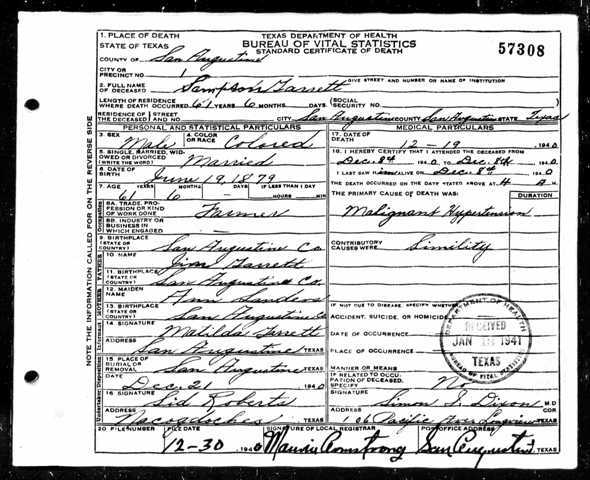 1. PLACE OF DEATH
STATE OF TEXAS
TEXAS DEPARTMENT OF HEALTH
BUREAU OF VITAL STATISTICS
STANDARD CERTIFICATE OF DEATH
57308
COUNTY OF San Augustine
CITY OR PRECINCT NO. 1
GIVE STREET AND NUMBER OR NAME OF INSTITUTION
2. FULL NAME OF DECEASED Sampson Garrett
LENGTH OF RESIDENCE WHERE DEATH OCCURRED 61 YEARS 6 MONTHS DAYS (SOCIAL SECURITY)
RESIDENCE OF THE DECEASED STREET AND NO. CITY San Augustine COUNTY San Augustine STATE Texas
PERSONAL AND STATISTICAL PARTICULARS
3. SEX Male 4. COLOR OR RACE Colored
5. SINGLE, MARRIED, WIDOWED OR DIVORCED (WRITE THE WORD) Married
6. DATE OF BIRTH June 19, 1879
7. AGE YEARS MONTHS DAYS IF LESS THAN 1 DAY
61 6 — HOURS MIN.
8A. TRADE, PROFESSION OR KIND OF WORK DONE Farmer
8B. INDUSTRY OR BUSINESS IN WHICH ENGAGED —
9. BIRTHPLACE (STATE OR COUNTRY) San Augustine Co
10. NAME Jim Garrett
11. BIRTHPLACE (STATE OR COUNTRY) San Augustine Co.
12. MAIDEN NAME Ann Sanders
13. BIRTHPLACE (STATE OR COUNTRY) San Augustine Co
14. SIGNATURE Matilda Garrett
ADDRESS San Augustine TEXAS
15. PLACE OF BURIAL OR REMOVAL San Augustine TEXAS
DATE Dec. 21 1940
16. SIGNATURE Sid Roberts
ADDRESS Nacogdoches TEXAS
MEDICAL PARTICULARS
17. DATE OF DEATH 12-19 1940
18. I HEREBY CERTIFY THAT I ATTENDED THE DECEASED FROM
Dec. 8th 1940 TO Dec. 8th 1940
I LAST SAW ALIVE ON Dec. 8th 1940
THE DEATH OCCURRED ON THE DATE STATED ABOVE AT 4 A. M.
THE PRIMARY CAUSE OF DEATH WAS: DURATION
Malignant Hypertension
CONTRIBUTORY CAUSES WERE: Simility
IF NOT DUE TO DISEASE, SPECIFY WHETHER
ACCIDENT, SUICIDE, OR HOMICIDE
DATE OF OCCURRENCE
PLACE OF OCCURRENCE
IF RELATED TO OCCUPATION OF DECEASED, SPECIFY No
Simon S. Dixon M.D.
ADDRESS 106 Pacific Ave Longview TEXAS
DEPARTMENT OF HEALTH
RECEIVED
JAN 1941
TEXAS
BUREAU OF VITAL STATISTICS
20. FILE NUMBER FILE DATE SIGNATURE OF LOCAL REGISTRAR POST OFFICE ADDRESS
12-30 1940 Armstrong San Augustine TEXAS
NOTE THE INFORMATION CALLED FOR ON THE REVERSE SIDE
MOTHER FATHER